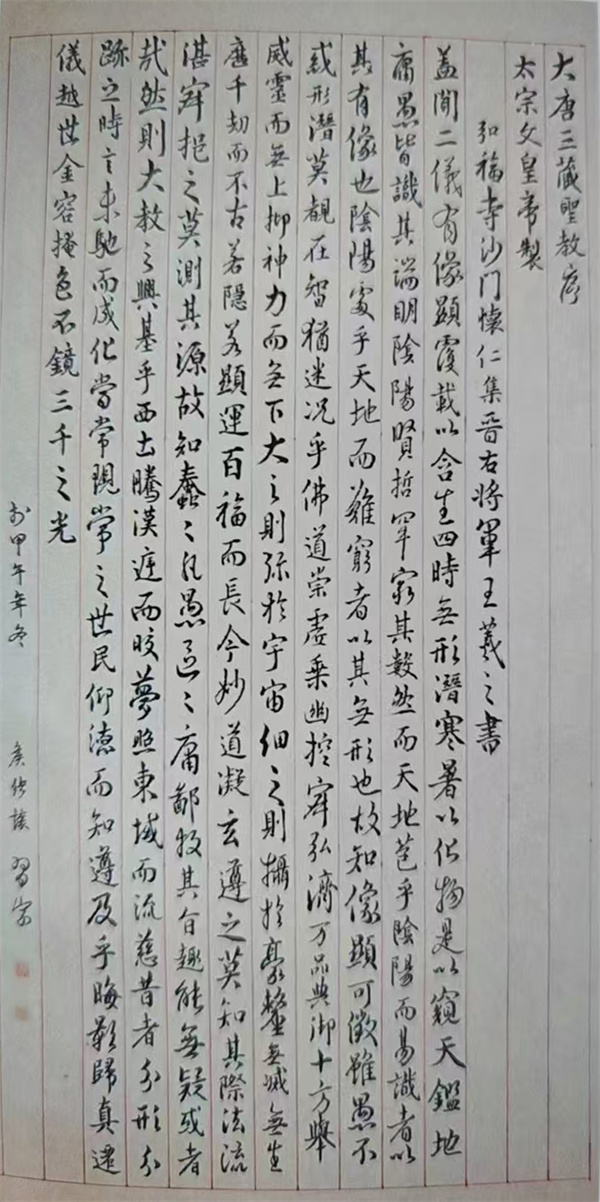 大唐三藏聖教序
太宗文皇帝製
弘福寺沙门懷仁集晉右將軍王羲之書
蓋聞二儀有像顯覆載以含生四時無形潛寒暑以化物是以窺天鑑地
庸愚皆識其端明陰陽賢哲罕窮其數然而天地苞乎陰陽而易識者以
其有像也陰陽處乎天地而難窮者以其無形也故知像顯可徵雖愚不
惑形潛莫覩在智猶迷況乎佛道崇虛乘幽控寂弘濟万品典御十方舉
威靈而無上抑神力而無下大之則弥於宇宙細之則攝於豪釐無滅無生
歷千劫而不古若隱若顯運百福而長今妙道凝玄遵之莫知其際法流
湛寂挹之莫測其源故知蠢々凡愚區々庸鄙投其旨趣能無疑或者
哉然則大教之興基乎西土騰漢庭而皎夢照東域而流慈昔者分形分
跡之時言未馳而成化當常現常之世民仰德而知遵及乎晦影歸真遷
儀越世金容掩色不鏡三千之光
於甲午年冬
習字